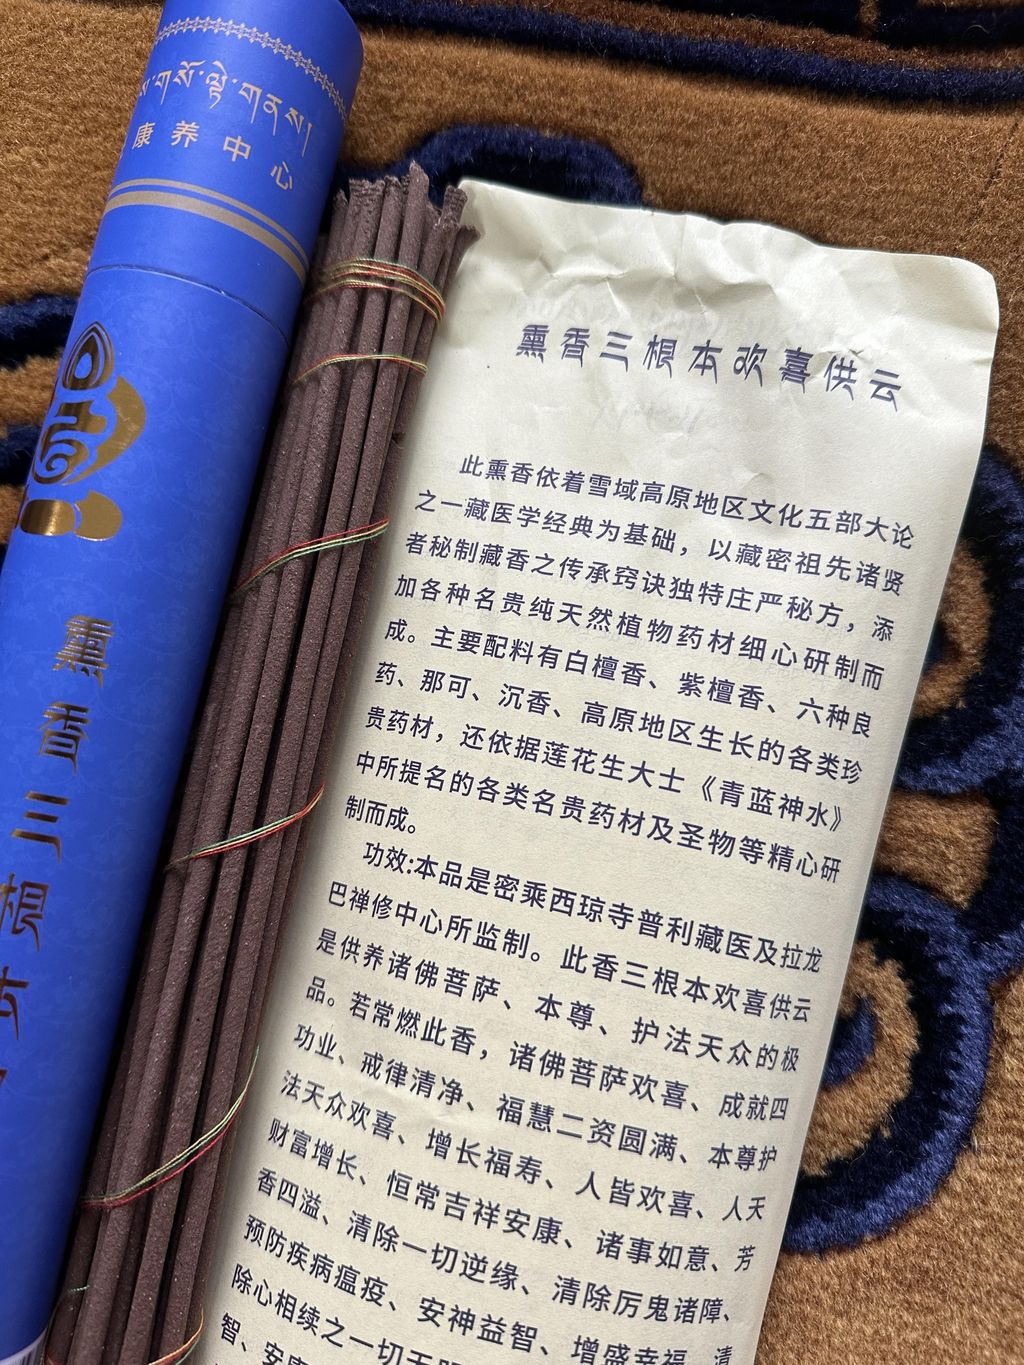 康养中心
熏香三根本
熏香三根本欢喜供云
此熏香依着雪域高原地区文化五部大论
之一藏医学经典为基础，以藏密祖先诸贤
者秘制藏香之传承窍诀独特庄严秘方，添
加各种名贵纯天然植物药材细心研制而
成。主要配料有白檀香、紫檀香、六种良
药、那可、沉香、高原地区生长的各类珍
贵药材，还依据莲花生大士《青蓝神水》
中所提名的各类名贵药材及圣物等精心研
制而成。
功效:本品是密乘西琼寺普利藏医及拉龙
巴禅修中心所监制。此香三根本欢喜供云
是供养诸佛菩萨、本尊、护法天众的极
品。若常燃此香，诸佛菩萨欢喜、成就四
功业、戒律清净、福慧二资圆满、本尊护
法天众欢喜、增长福寿、人皆欢喜、人天
财富增长、恒常吉祥安康、诸事如意、芳
香四溢、清除一切逆缘、清除厉鬼诸障、
预防疾病瘟疫、安神益智、增盛幸福、清
除心相续之一切无明
智、安康